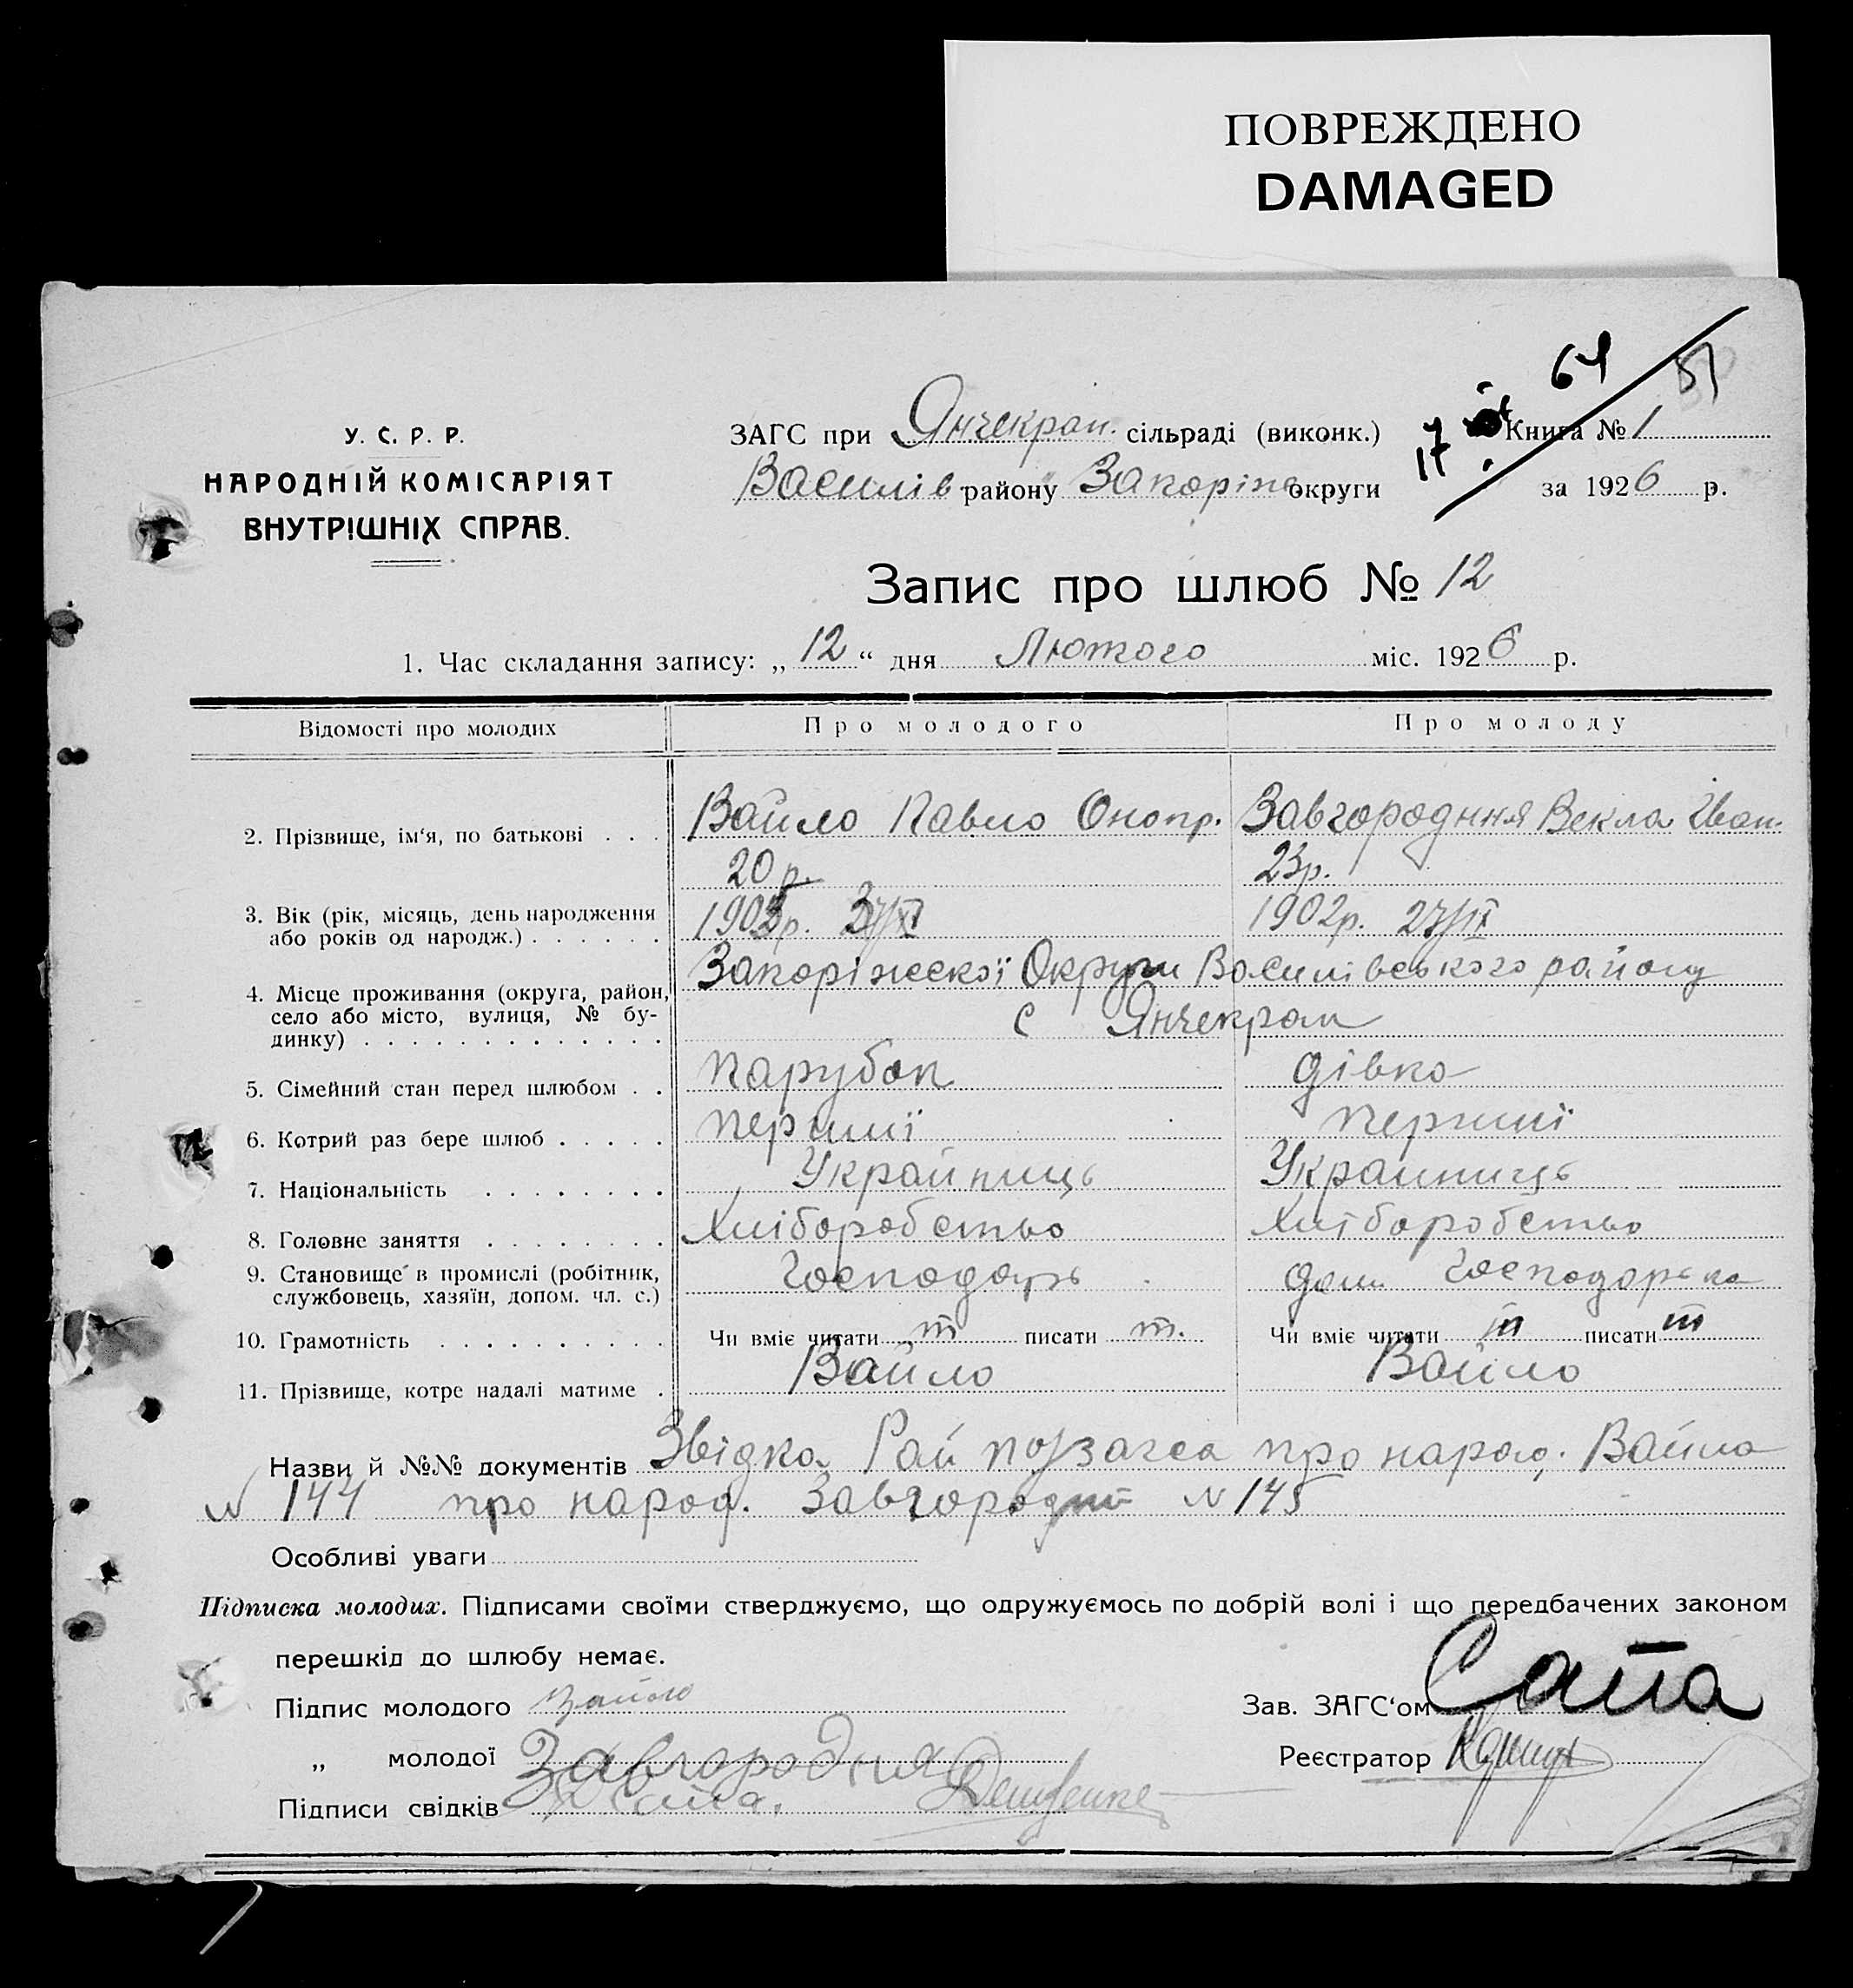 ПОВРЕЖДЕНО
DAMAGED
64
51
17
У. С. Р. Р.
НАРОДНІЙ КОМІСАРІЯТ
ВНУТРІШНІХ СПРАВ.
ЗАГС при Янчекрак. сільраді (виконк.)
Книга № 1
Василів району Запоріж округи
за 1926 р.
Запис про шлюб № 12
1. Час складання запису: „ 12 “ дня Лютого міс. 1926 р.
Відомості про молодих Про молодого Про молоду
2. Прізвище, ім‘я, по батькові . . . Вайло Павло Онопр. Завгородння Векла Іван.
20 р. 23р.
3. Вік (рік, місяць, день народження 1905р. 1902р.
або років од народж.) . . . . . .
Запоріжскої Округи Василівського району
4. Місце проживання (округа, район,
село або місто, вулиця, № бу-
с Янчекрак
динку) . . . . . . . . . . . . .
5. Сімейний стан перед шлюбом . . парубок дівка
6. Котрий раз бере шлюб . . . . . перший перший
7. Національність . . . . . . . . Украйниць Украиниць
8. Головне заняття . . . . . . . . Хліборобство Хліборобство
9. Становище в промислі (робітник, Господарь дом. Господарька
службовець, хазяїн, допом. чл. с.)
10. Грамотність . . . . . . . . . . Чи вміє читати т писати т. Чи вміє читати т писати т
11. Прізвище, котре надалі матиме . Вайло Вайло
Назви й №№ документів Звідка Рай про народ. Вайла
№ 144 про народ. Завгородній № 145
Особливі уваги
Підписка молодих. Підписами своїми стверджуємо, що одружуємось по добрій волі і що передбачених законом
перешкід до шлюбу немає.
Підпис молодого Вайло
Зав. ЗАГС‘ом Сапа
„ молодої Завгородня
Реєстратор
Підписи свідків